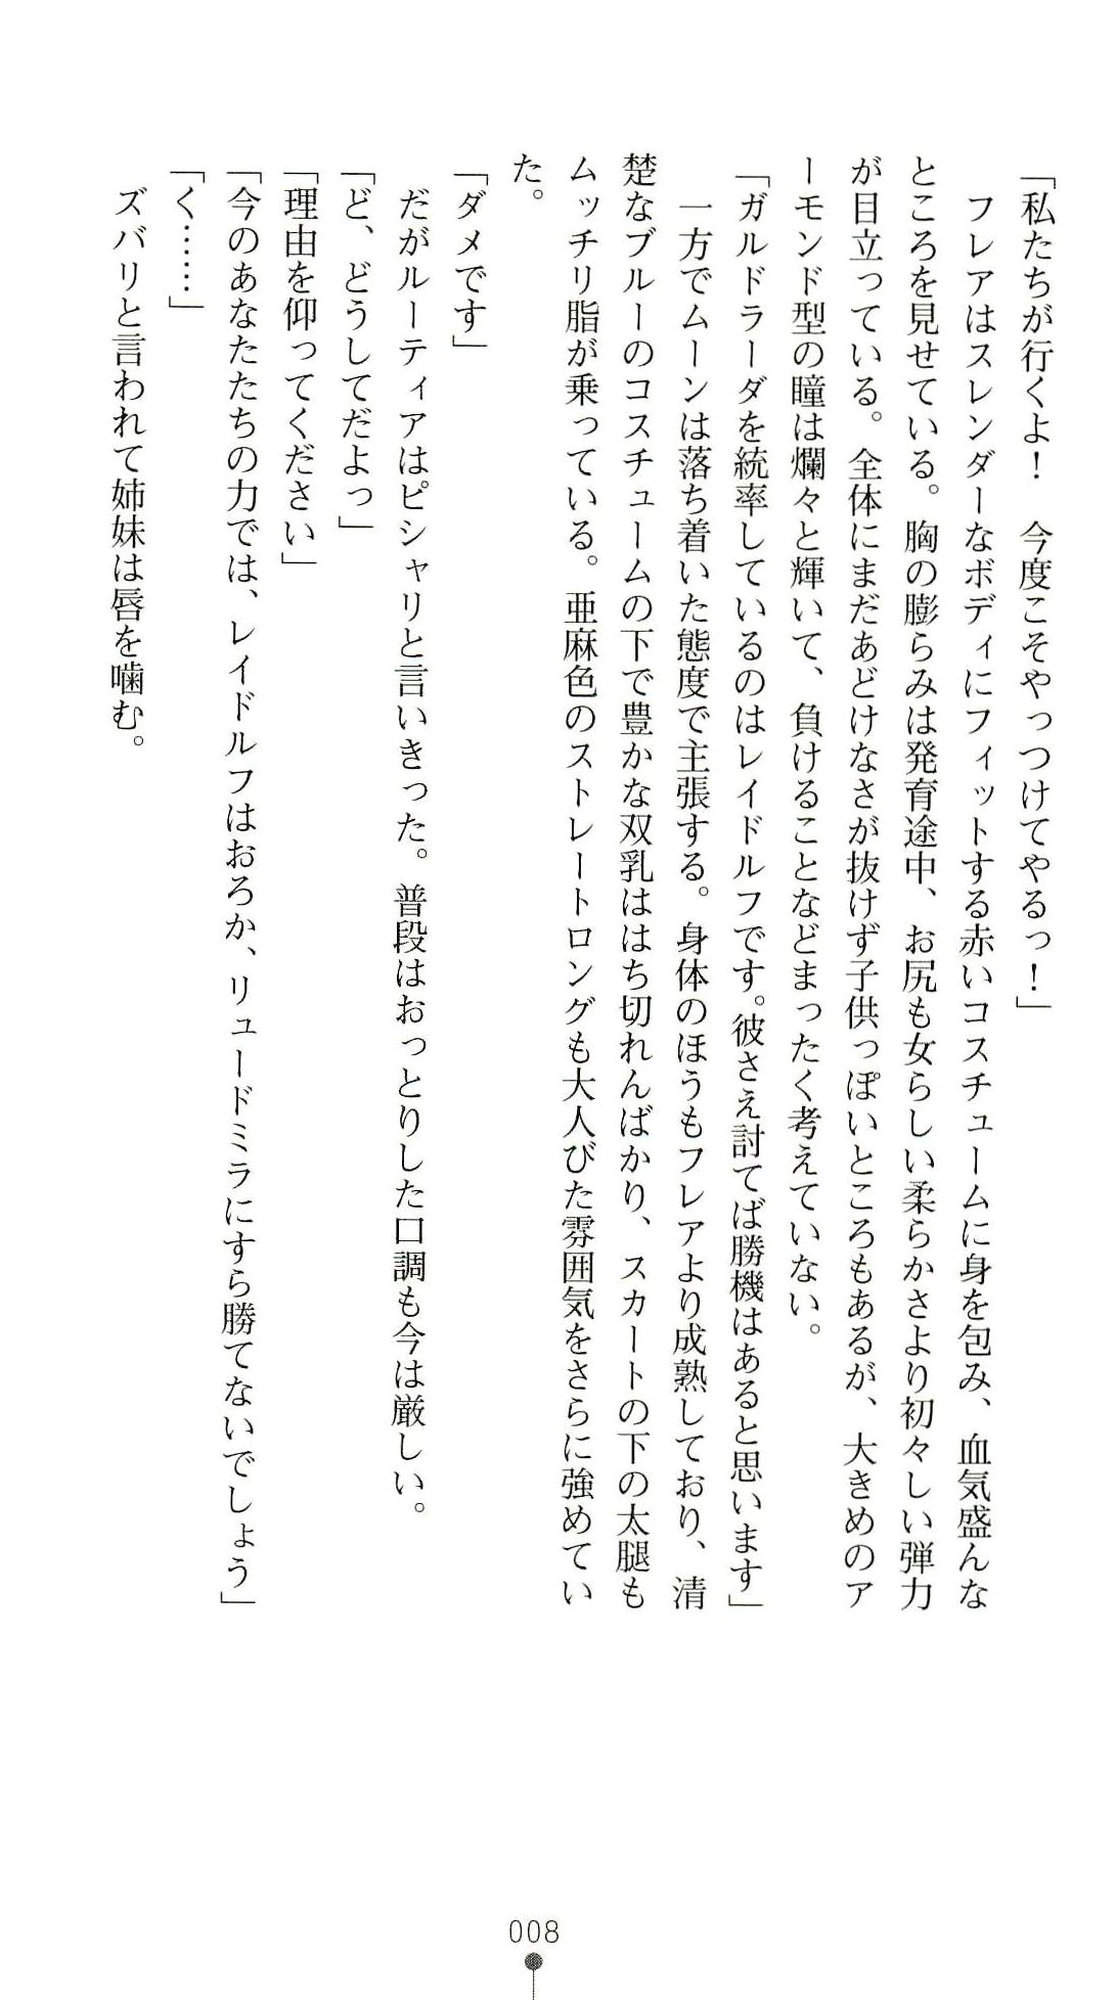 「私たちが行くよ！　今度こそやっつけてやるっ！」
　フレアはスレンダーなボディにフィットする赤いコスチュームに身を包み、血気盛んな
ところを見せている。胸の膨らみは発育途中、お尻も女らしい柔らかさより初々しい弾力
が目立っている。全体にまだあどけなさが抜けず子供っぽいところもあるが、大きめのア
ーモンド型の瞳は爛々と輝いて、負けることなどまったく考えていない。
「ガルドラーダを統率しているのはレイドルフです。彼さえ討てば勝機はあると思います」
　一方でムーンは落ち着いた態度で主張する。身体のほうもフレアより成熟しており、清
楚なブルーのコスチュームの下で豊かな双乳ははち切れんばかり、スカートの下の太腿も
ムッチリ脂が乗っている。亜麻色のストレートロングも大人びた雰囲気をさらに強めてい
た。
「ダメです」
　だがルーティアはピシャリと言いきった。普段はおっとりした口調も今は厳しい。
「ど、どうしてだよっ」
「理由を仰ってください」
「今のあなたたちの力では、レイドルフはおろか、リュードミラにすら勝てないでしょう」
「く……」
　ズバリと言われて姉妹は唇を噛む。
008